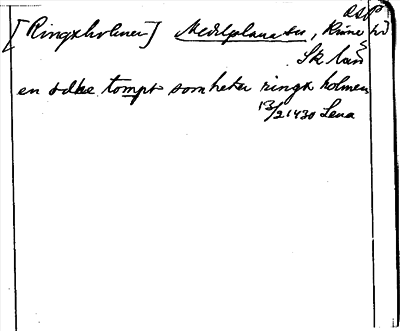 DSP
[Ringxholmen] Medelplana sn, Kinne hd
Sk län
en ødhe tompt som heter ringx holmen
13/2 1430 Lena